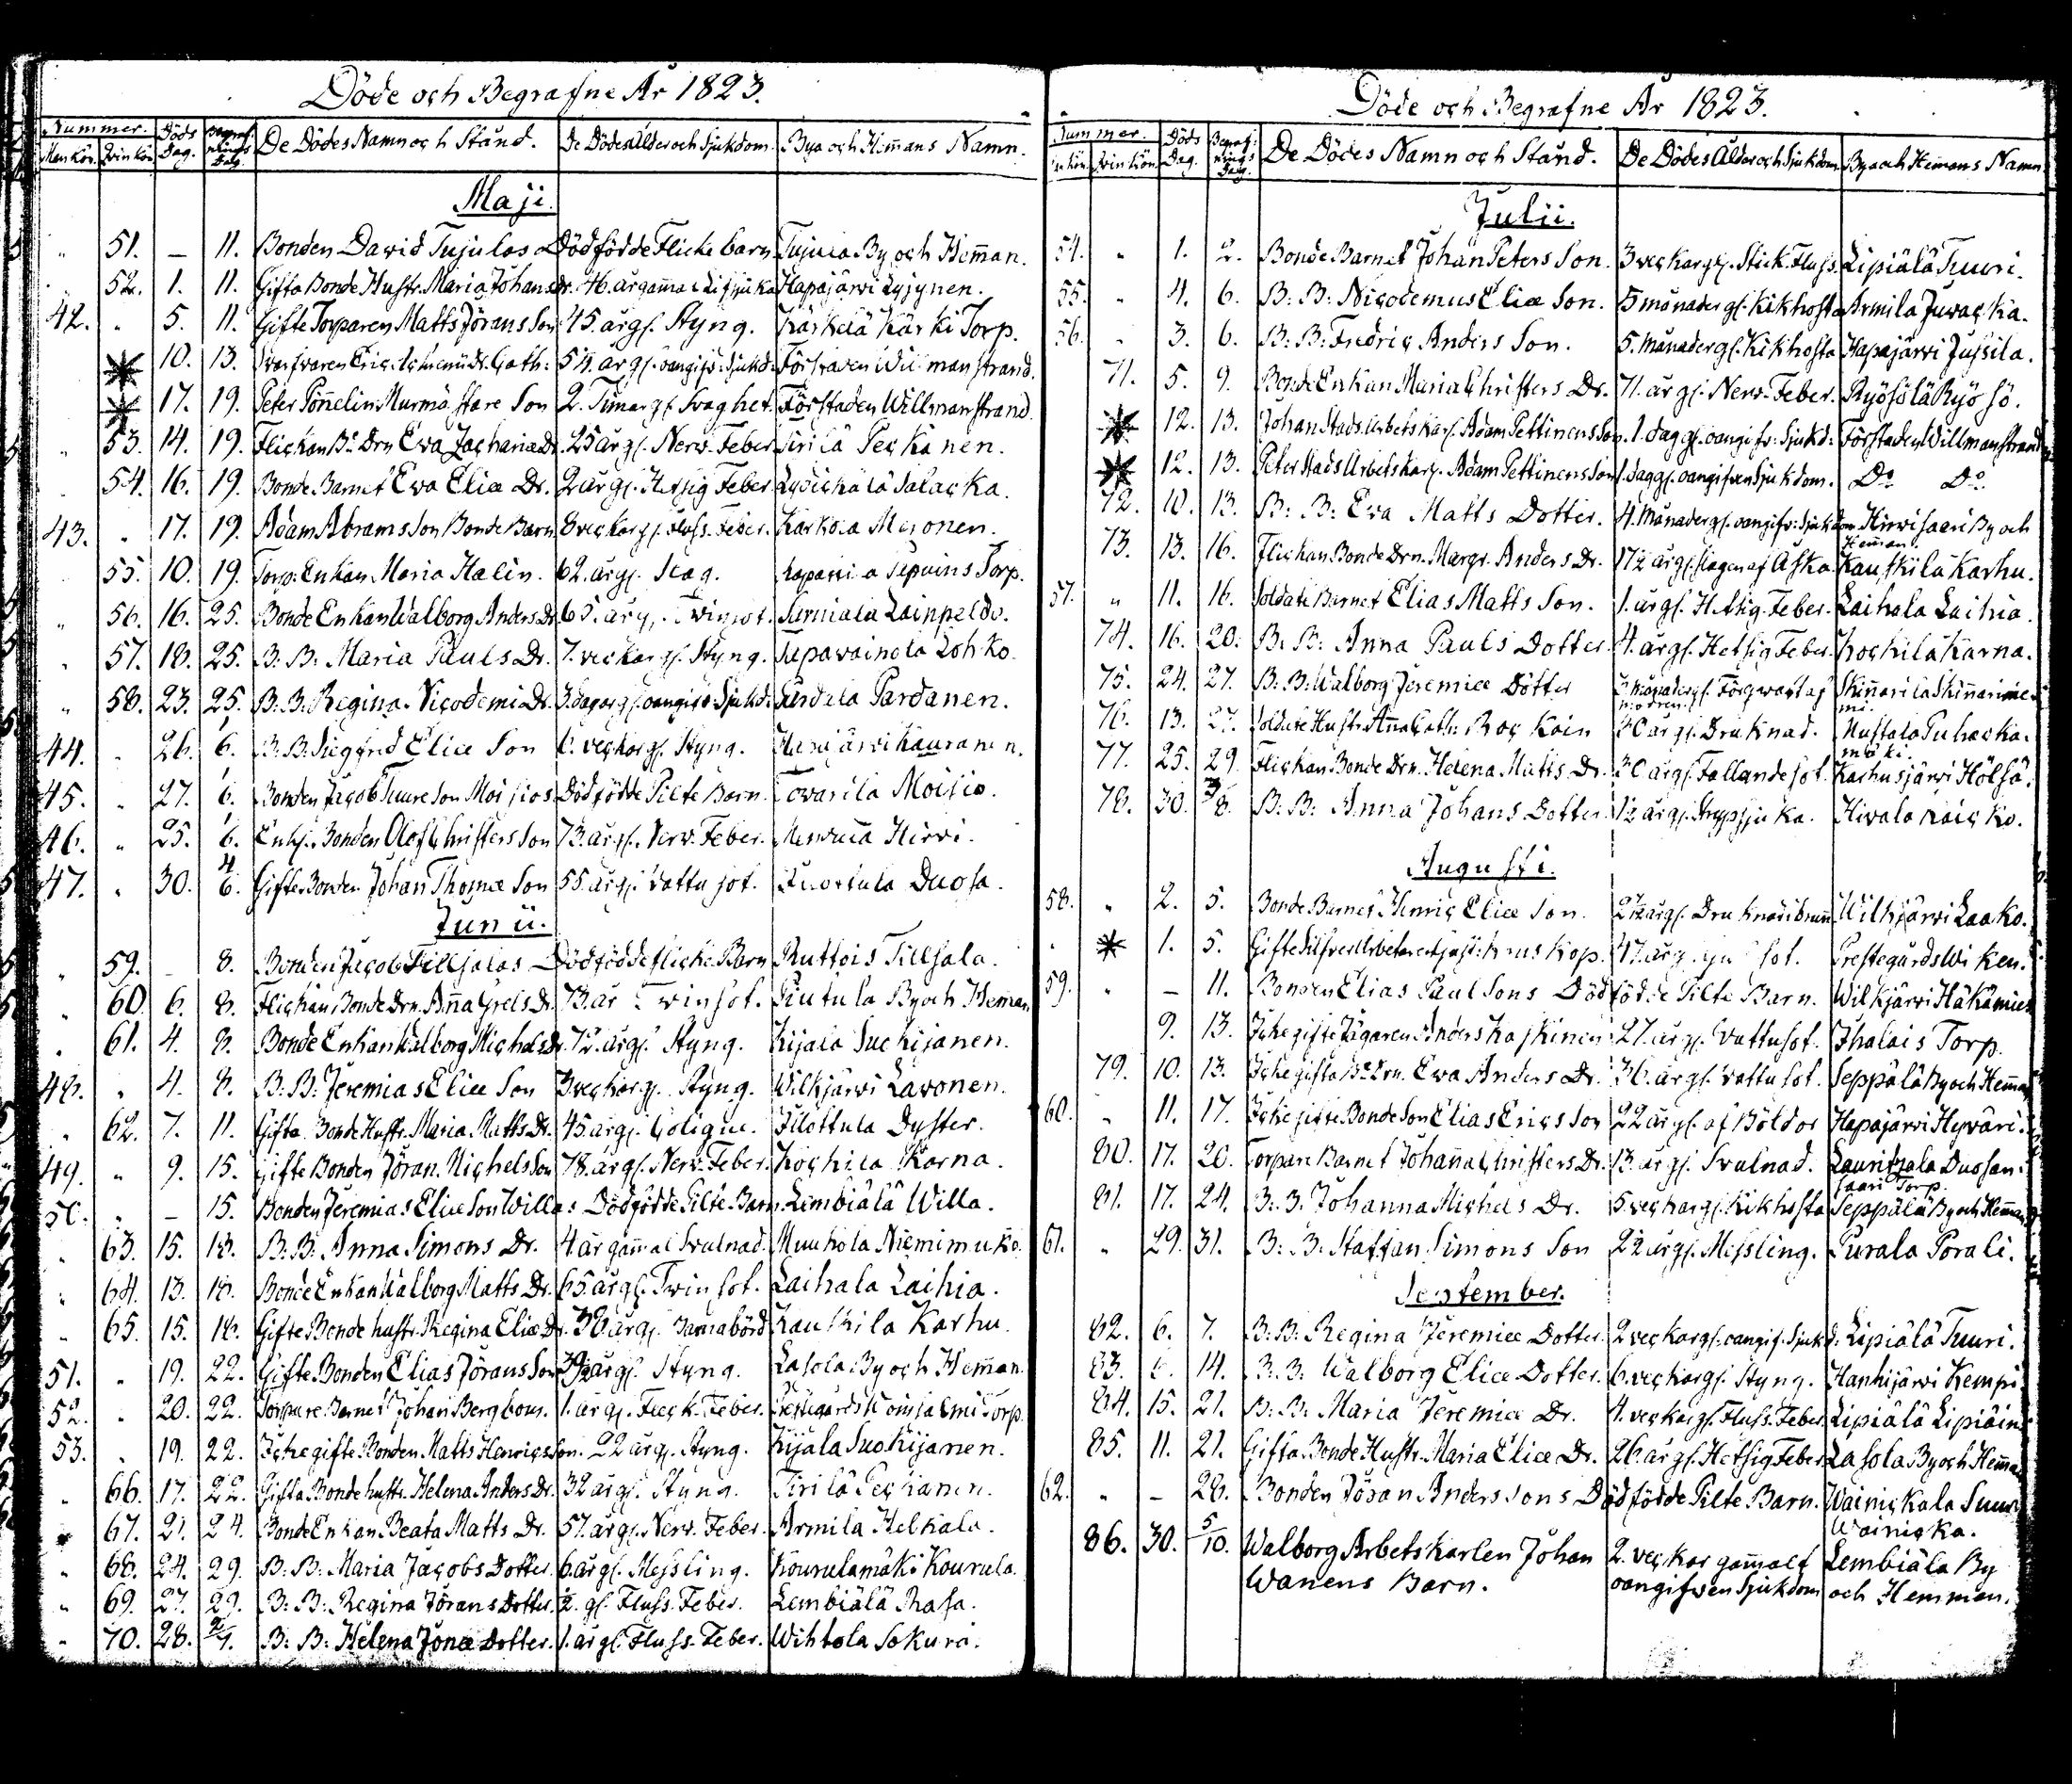 Döde och Begrafne År 1823.
Nummer. Döds Dag. Begrafnings Dag. De Dödes Namn och Stånd. De Dödes Ålder och Sjukdom. Bya och Hemmans Namn.
Man kön. Qvin kön
Maji.
" 51. – 11. Bonden David Tujulas Dödfödde Flicke barn Tujula By och Hem̄an.
52. 1. 11. Gifta Bonde Hustr. Maria Johans Dr. 46. år gamma Hapajärvi
42. " 5. 11. Gifte Torparen Matts Jörans Son 45. årgl. Styng. Kärkelä Kärki Torp.
10. 13. Cath: 54. årgl. oangifv: Sjukd: Förstaden Willmanstrand.
17. 19. Peter Murmästare Son 2. Timargl. Svaghet. Förstaden Willmanstrand.
" 53. 14. 19. Flickan Be Drn Eva Zachariæ Dr. 25 årgl. Nerv. Feber. Tirilä Peckanen.
54. 16. 19. Bonde Barnet Eva Eliæ Dr. 2 årgl. Hetsig Feber. Salacka.
43. " 17. 19. Adam Abrams Son Bonde Barn 8 veckorgl. Fluss. Feber. Karkola
55. 10. 19. Torp: Enkan Maria Halin. 62. årgl. Torp.
" 56. 16. 25. Bonde Enkan Walborg Anders Dr. 65. årgl. Tvinsot.
" 57. 18. 25. B. B: Maria Pauls Dr. 7. veckorgl. Styng. Lohko.
" 58. 23. 25. B. B. Regina Nicodemi Dr. 3. dagargl. oangifv: Sjukd: Pardanen.
44. " 26. 6. B. B. Sigfrid Eliæ Son 6. veckorgl. Styng. Hapajärvi Kauranen.
45. " 27. 6. Bonden Jacob Tuure Son Moisios Dödfödde Pilte Barn. Moisio.
46. " 25. 6. Enkl. Bonden Olof Christers Son 73. årgl. Nerv. Feber. Hirvi.
47. " 30. 4/6. Gifte Bonden Johan Thomæ Son 55. årgl. Vattusot. Duosa.
Junii.
" 59. – 8. Bonden Jacob Tillsalas Dödfödde Flicke Barn Ruttois Tillsala.
" 60. 6. 8. Flickan Bonde Drn. Anna Grels Dr. 73. år Tvinsot. By och Heman.
" 61. 4. 8. Bonde Enkan Walborg Michels Dr. 72. årgl. Styng. Kijala Suckijanen.
48. " 4. 8. B. B: Jeremias Eliæ Son 3 veckorgl. Styng. Wilkjärvi Lavonen.
" 62. 7. 11. Gifta Bonde Hustr. Maria Matts Dr. 45. årgl. Colique. Dyster.
49. " 9. 15. Gifte Bonden Jöran Michels Son 78. årgl. Nerv. Feber. Kockila Karna.
50. " – 15. Bonden Jeremias Eliæ Son Willas Dödfödde Pilte Barn Lembiälä Willa.
" 63. 15. 18. B. B: Anna Simons Dr. 4 år gammal Svulnad. Muukola
" 64. 13. 18. Bonde Enkan Walborg Matts Dr. 65. årgl. Tvinsot. Laihala Laihia.
" 65. 15. 18. Gifte Bonde hustr. Regina Eliæ Dr. 38 årgl. Barnabörd Kauskila Karhu.
51. " 19. 22. Gifte Bonden Elias Jörans Son årgl. Styng. Lasola By och Hem̄an.
52. " 20. 22. Torpare Barnet Johan Bergbom. 1. årgl. Fleck. Feber. Torp.
53. " 19. 22. Icke gifte Bonden Matts Henrics Son. 22 årgl. Styng. Kijala Suckijanen.
" 66. 17. 22. Gifta Bonde hustr. Helena Anders Dr. 32 årgl. Styng. Tirilä Peckanen.
" 67. 21. 24. Bonde Enkan Beata Matts Dr. 57. årgl. Nerv. Feber. Armila Helkala.
" 68. 24. 29. B. B: Maria Jacobs Dotter. 6. årgl. Messling. Kourulamäki Kourula.
" 69. 27. 29. B: B: Regina Jörans Dotter. gl. Fluss. Feber. Lembiälä Rasa.
" 70. 28. B: B: Helena Jonæ Dotter. 1. årgl. Fluss. Feber. Wihtola Sokura.
Döde och Begrafne År 1823.
Nummer. Döds Dag. Begrafnings Dag. De Dödes Namn och Stånd. De Dödes Ålder och Sjukdom Bya och Hemans Namn.
Julii.
54. " 1. 2. Bonde Barnet Johan Peters Son. 3 veckorgl. Stick. Fluss. Lipiälä Tuuri.
55. " 4. 6. B: B: Nicodemus Eliæ Son. 5 månadergl. Kikhosta Armila Juvacka.
56. " 3. 6. B: B: Fredric Anders Son. 5. Månadergl. Kikhosta Hapajärvi Jussila.
71. 5. 9. Bonde Enkan Maria Christers Dr. 71. årgl. Nerv. Feber. Ryösölä Ryösö.
12. 13. Johan Stads Arbets Karl. Adam Pettinens Son. 1. daggl. oangifv: Sjukd: Förstaden Willmanstrand
12. 13. Peter Stads Arbets Karl. Adam Pettinens Son 1. daggl. oangifven Sjukdom. Do Do
72. 10. 13. B: B: Eva Matts Dotter. 4. Månadergl. oangifv: Sjukdom Hirvisaari By och
Heman.
73. 13. 16. Flickan Bonde Drn. Margr. Anders Dr. 17½ årgl. slagen af Åska Kauskila Karhu.
57. " 11. 16. Soldate Barnet Elias Matts Son. 1. årgl. Hetsig Feber. Laihala Laihia.
74. 16. 20. B: B: Anna Pauls Dotter. 4. årgl. Hetsig Feber. Kockila Karna.
75. 24. 27. B: B: Walborg Jeremiæ Dotter 3 Månadergl. af
modren.
76. 13. 27. Soldate Hustr. Anna Cath: 30 årgl. Druknad. Muttola Puhacka
mäki.
77. 25. 29. Flickan Bonde Drn. Helena Matts Dr. 30 årgl. Fallandesot. Karhusjärvi Hölsä.
78. 30. 3/8. B: B: Anna Johans Dotter. 1½ årgl. Strypsjuka. Hivala
Augusti.
58. " 2. 5. Bonde Barnet Henric Eliæ Son. 2½ årgl. Wilkjärvi Laako.
1. 5. Gifte Silfver Arbetaren 47. årgl. sot. Prestegårds Wiken.
59. " – 11. Bonden Elias Paul Sons Dödfödde Pilte Barn. Wilkjärvi Häkämies
9. 13. Icke gifte Jägaren Anders Kaskinen 27. årgl. Vattusot. Ihalais Torp.
79. 10. 13. Icke gifta Be Drn. Eva Anders Dr. 36. årgl. Vattusot. Seppälä By och Heman
60. " 11. 17. Icke gifte Bonde Son Elias Erics Son 22 årgl. af Böldor Hapajärvi Hyväri.
80. 17. 20. Torpare Barnet Johanna Christers Dr. 13. årgl. Svulnad. Lauritzala Duosan
saari Torp.
81. 17. 24. B: B: Johanna Michels Dr. 5. veckorgl. Kikhosta Seppälä By och Heman
61. " 29. 31. B: B: Staffan Simons Son 2½ årgl. Messling. Purala Porali.
September.
82. 6. 7. B: B: Regina Jeremiæ Dotter. 2 veckorgl. oangif. Sjukd. Lipiälä Tuuri.
83. 14. B: B: Walborg Eliæ Dotter. 6. veckorgl. Styng. Hanhijärvi Kempi.
84. 15. 21. B: B: Maria Jeremiæ Dr. 4. veckorgl. Fluss. Feber. Lipiälä Lipiäin
85. 11. 21. Gifta Bonde Hustr. Maria Eliæ Dr. 26. årgl. Hetsig Feber Lasola By och Heman
62. " – 28. Bonden Jöran Anderssons Dödfödde Pilte Barn. Wainickala Suur
Wainicka.
86. 30. 5/10. Walborg Arbetskarlen Johan 2. veckor gam̄alt Lembiälä By
Wanens Barn. oangifven Sjukdom och Hemman.